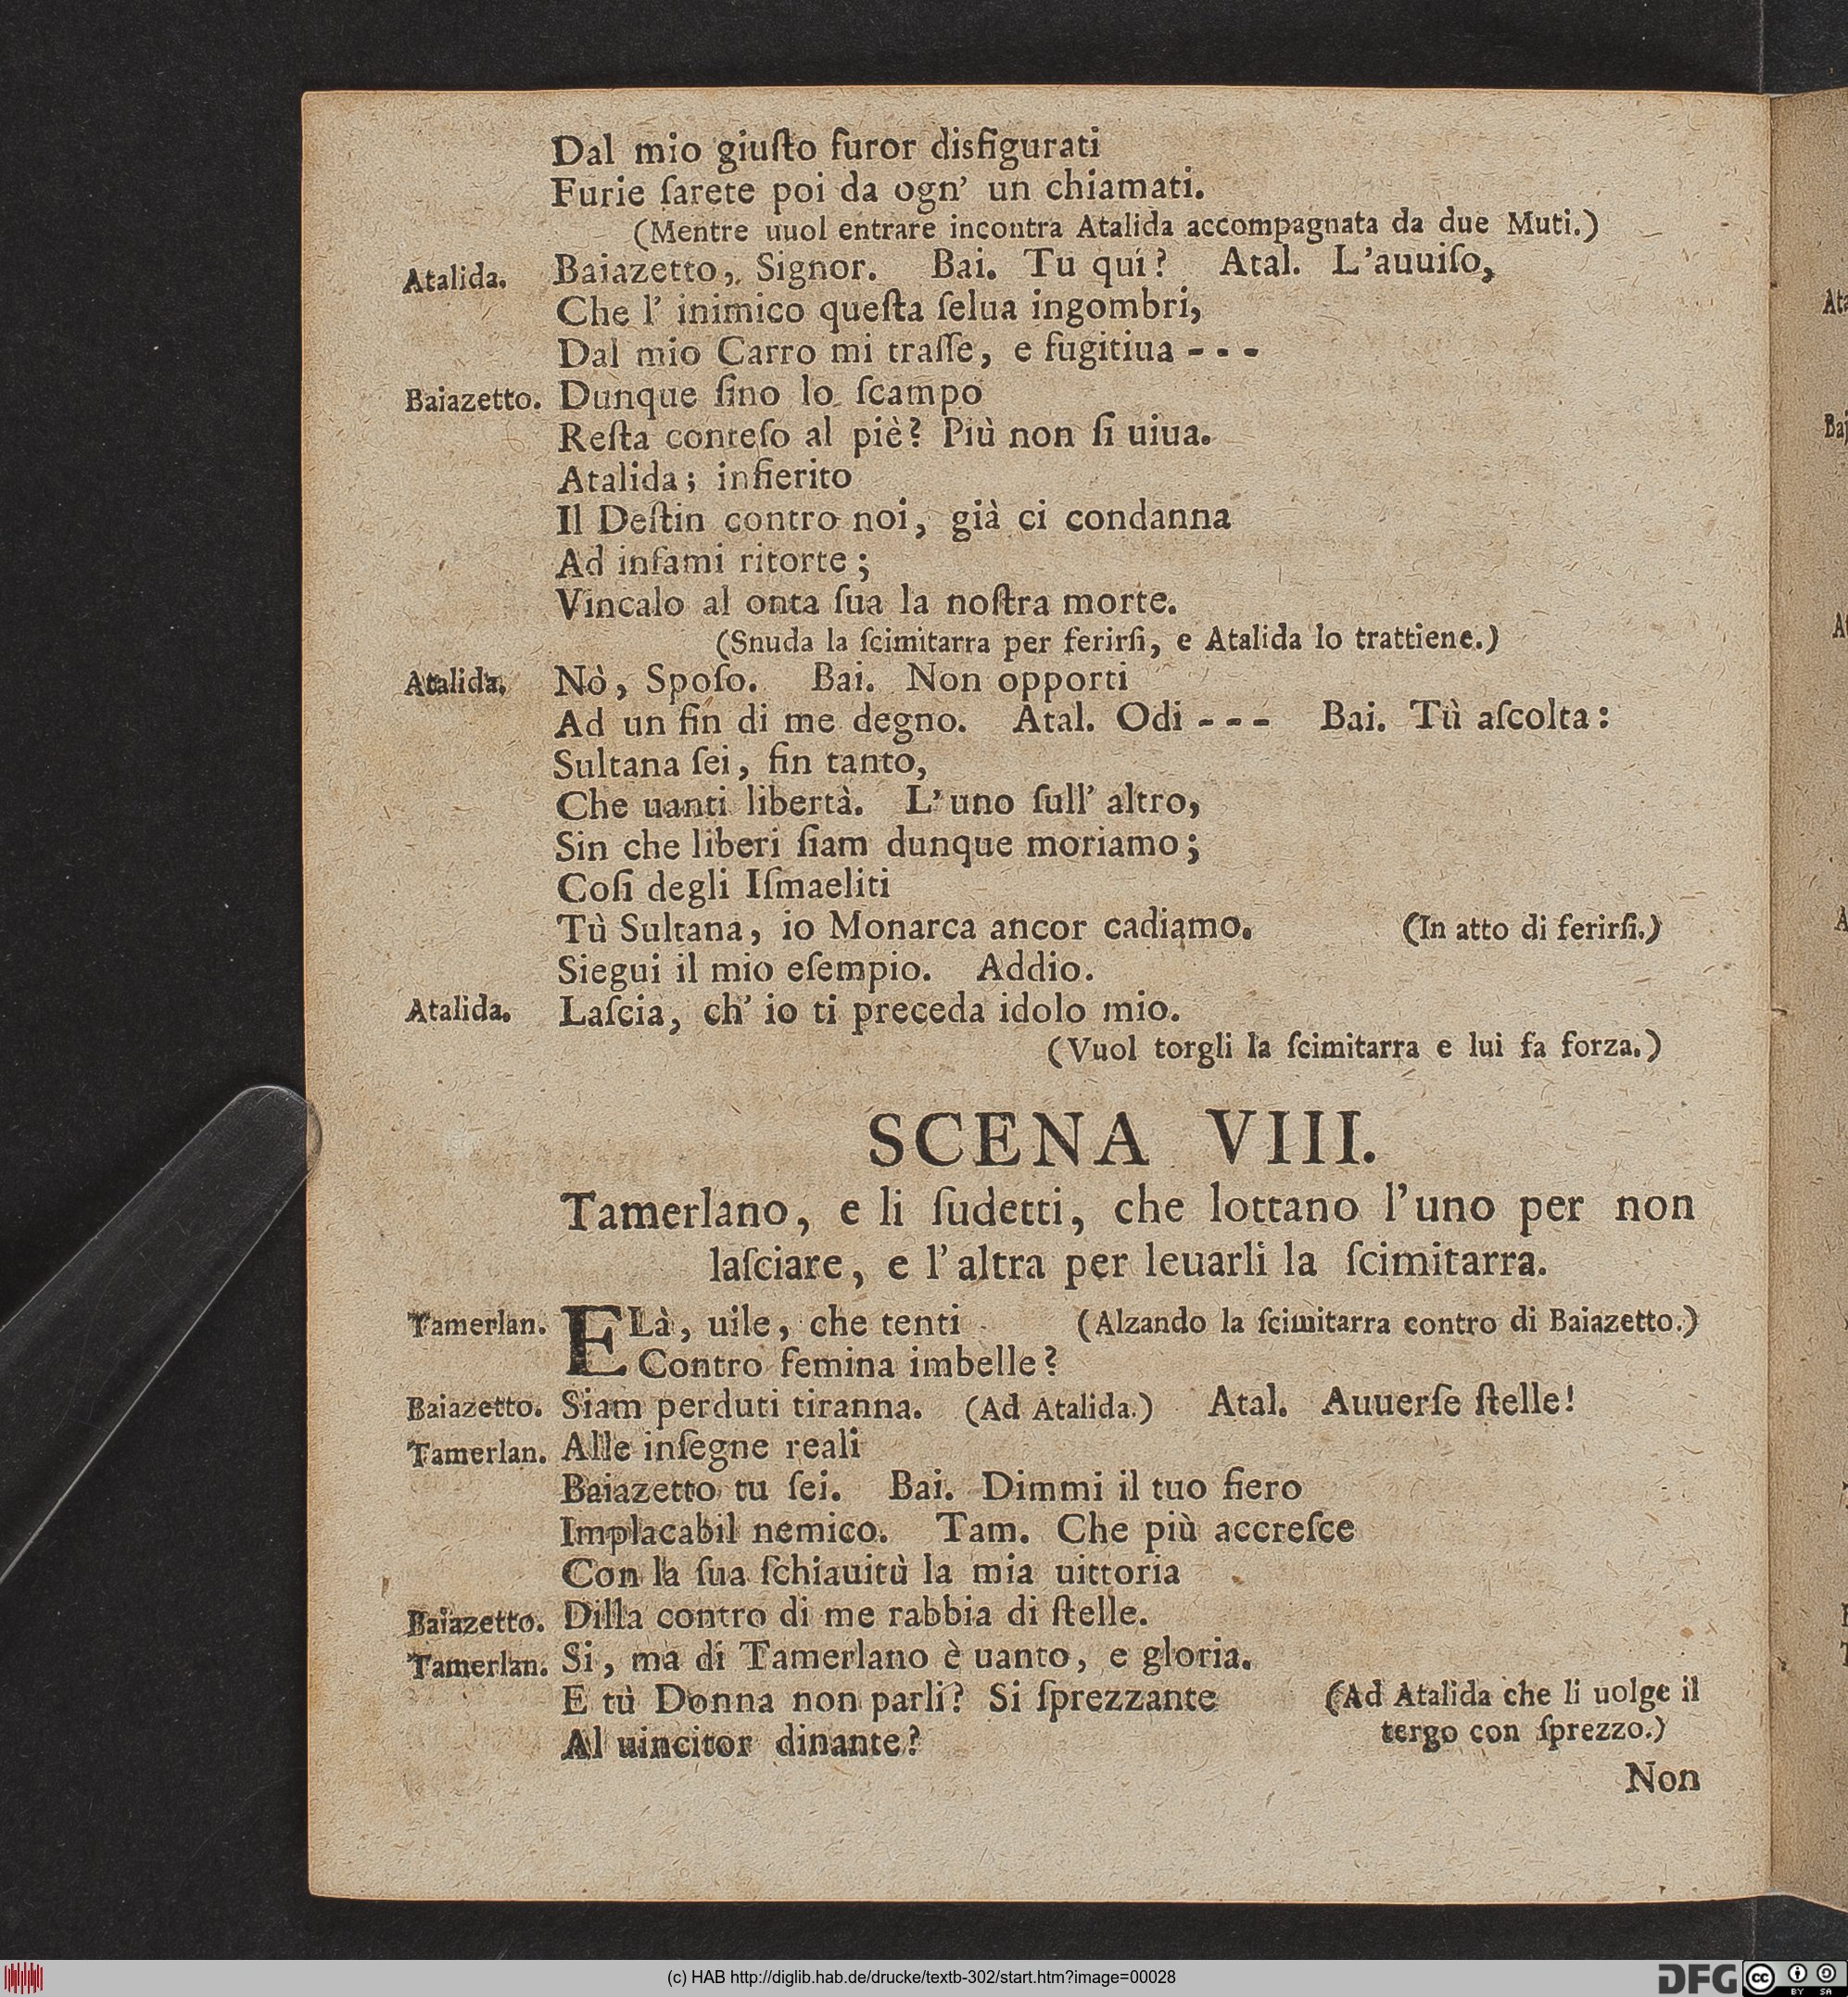 Dal mio giuſto furor disfigurati
Furie ſarete poi da ogn' un chiamati.
(Mentre uuol entrare incontra Atalida accompagnata da due Muti.)
Atalida. Baiazetto, Signor. Bai. Tu qui? Atal. L'auuiſo,
Che l' inimico queſta ſelua ingombri,
Dal mio Carro mi traſſe, e fugitiua - - -
Baiazetto. Dunque ſino lo ſcampo
Reſta conteſo al piè? Più non ſi uiua.
Atalida; infierito
Il Deſtin contro noi, già ci condanna
Ad infami ritorte;
Vincalo al onta ſua la noſtra morte.
(Snuda la ſcimitarra per ferirſi, e Atalida lo trattiene.)
Atalida. Nò, Spoſo. Bai. Non opporti
Ad un fin di me degno. Atal. Odi - - - Bai. Tù aſcolta:
Sultana ſei, fin tanto,
Che uanti libertà. L'uno ſull' altro,
Sin che liberi ſiam dunque moriamo;
Coſi degli Iſmaeliti
Tù Sultana, io Monarca ancor cadiamo. (In atto di ferirſi.)
Siegui il mio eſempio. Addio.
Atalida. Laſcia, ch' io ti preceda idolo mio.
(Vuol torgli la ſcimitarra e lui fa forza.)
SCENA VIII.
Tamerlano, e li ſudetti, che lottano l'uno per non
laſciare, e l'altra per leuarli la ſcimitarra.
Tamerlan. ELà, uile, che tenti (Alzando la ſcimitarra contro di Baiazetto.)
Contro femina imbelle?
Baiazetto. Siam perduti tiranna. (Ad Atalida.) Atal. Auuerſe ſtelle!
Tamerlan. Alle inſegne reali
Baiazetto tu ſei. Bai. Dimmi il tuo fiero
Implacabil nemico. Tam. Che più accreſce
Con la ſua ſchiauitù la mia uittoria
Baiazetto. Dilla contro di me rabbia di ſtelle.
Tamerlan. Si, ma di Tamerlano è uanto, e gloria.
E tù Donna non parli? Si ſprezzante (Ad Atalida che li uolge il
Al uincitor dinante? tergo con ſprezzo.)
Non
(c) HAB http://diglib.hab.de/drucke/textb-302/start.htm?image=00028
DFG
cc BY SA